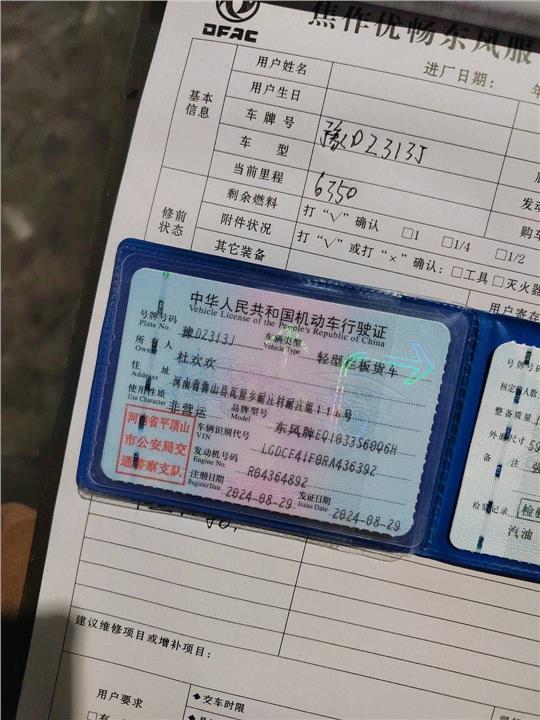 DFAC
焦作优畅东风服
进厂日期： 年
基本信息
用户姓名
用户生日
车牌号 豫DZ313J
车型
当前里程 6350
发动
修前状态
剩余燃料 打“√”确认 □1 □1/4 □1/2
购车
附件状况 打“√”或打“×”确认：□工具 □灭火器
其它装备
用户寄存
中华人民共和国机动车行驶证
Vehicle License of the People's Republic of China
号牌号码 Plate No. 豫DZ313J 车辆类型 Vehicle Type 轻型栏板货车
所有人 Owner 杜欢欢
住址 Address 河南省鲁山县瓦屋乡耐庄村耐庄组
使用性质 Use Character 非营运 品牌型号 Model 东风牌EQ1033S60Q6H
河南省平顶山市公安局交通警察支队
车辆识别代号 VIN LGDCF41F0RA436392
发动机号码 Engine No. R04364892
注册日期 Register Date 2024-08-29 发证日期 Issue Date 2024-08-29
号牌号码
核定载人数
整备质量
外廓尺寸
备注
检验记录 检验
汽油
建议维修项目或增补项目：
用户要求
◆交车时限
□有